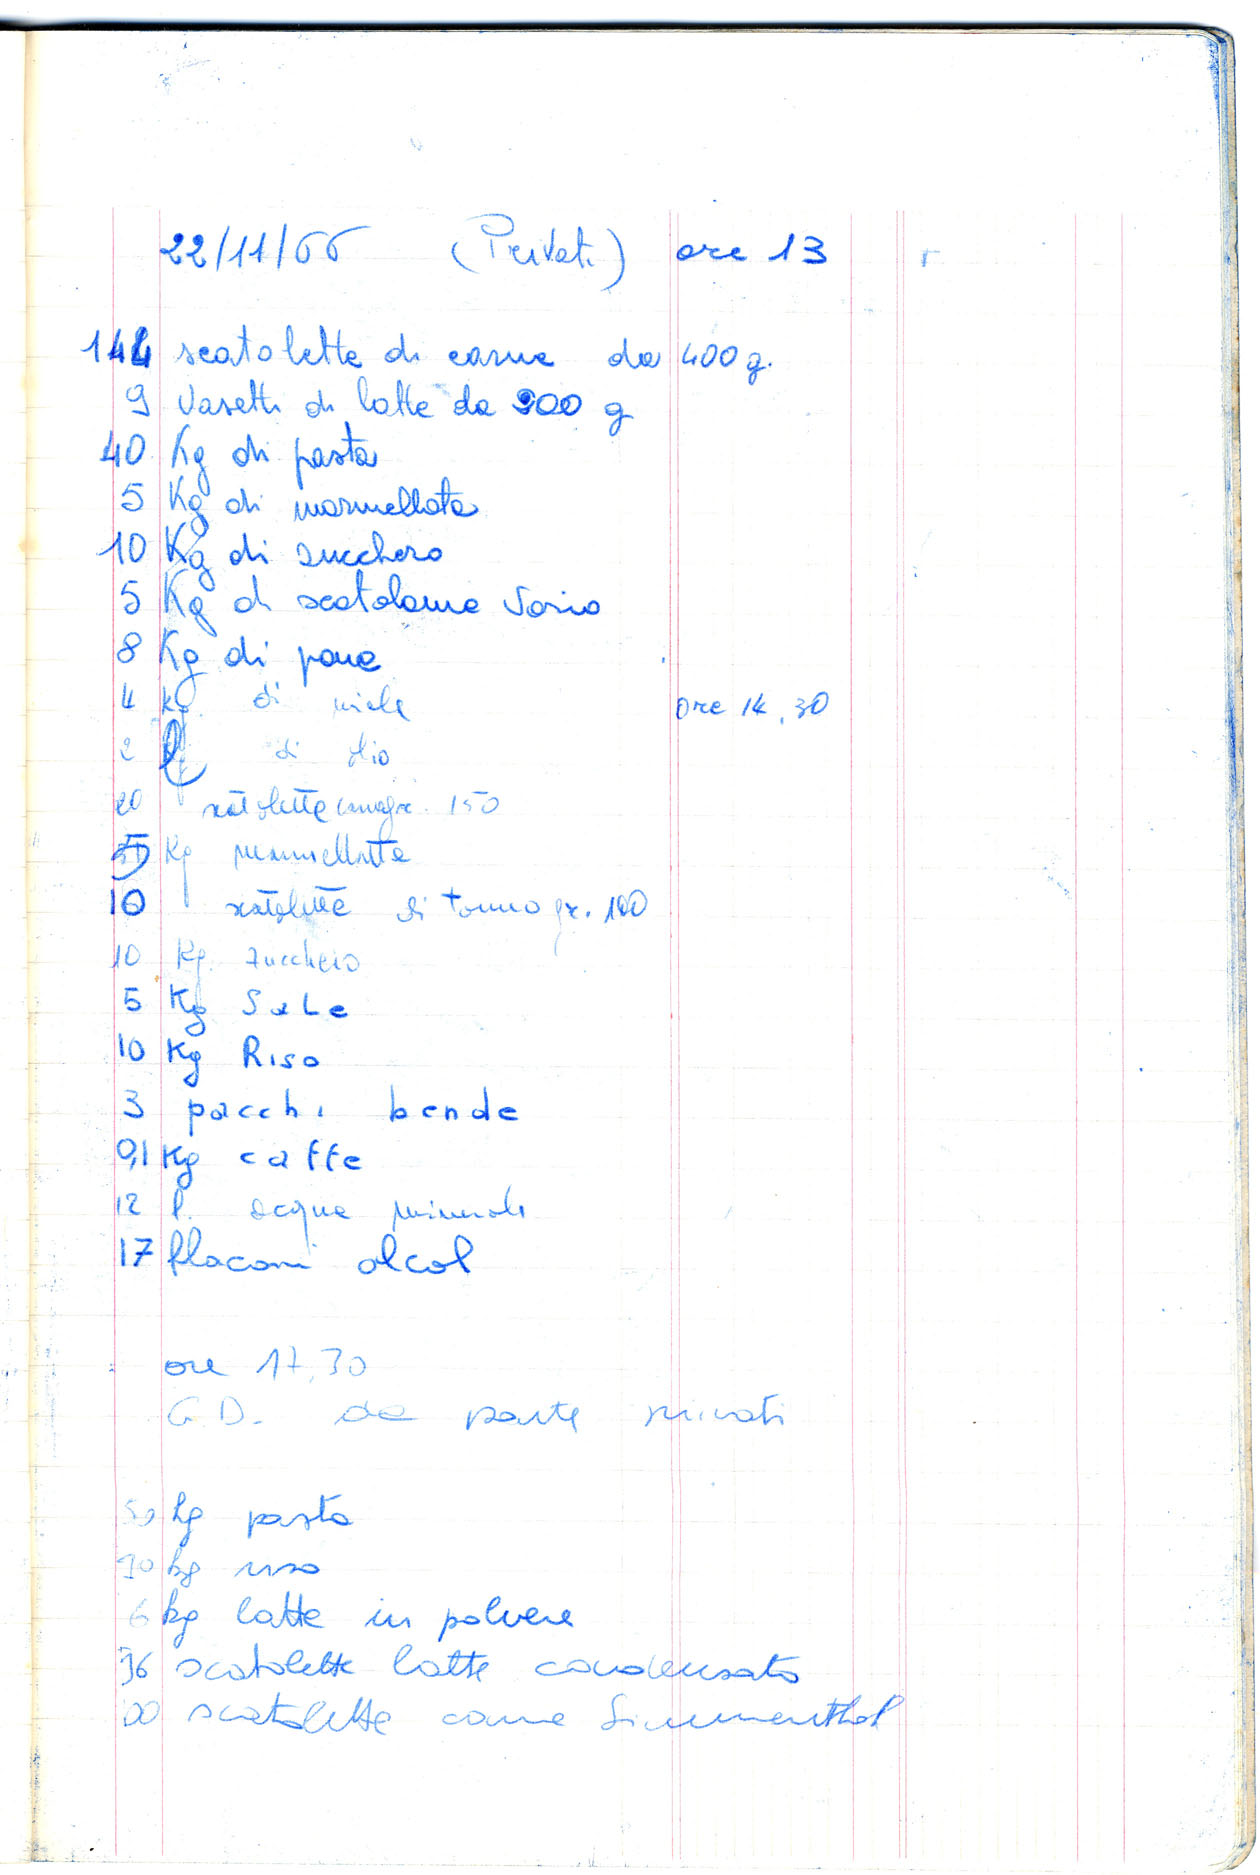 22/11/66 (Privati) ore 13
144 scatolette di carne da 400 g.
9 Vasetti di latte da 200 g
40 Kg di pasta
5 Kg di marmellata
10 Kg di zucchero
5 Kg di scatolame Vario
8 Kg di pane
4 kg. di miele ore 14,30
2 l di olio
20 scatolette carne gr. 150
5 Kg marmellata
10 scatolette di tonno gr. 100
10 Kg. zucchero
5 Kg Sale
10 Kg Riso
3 pacchi bende
0,1 Kg caffe
12 l. acqua minerale
17 flaconi alcol
ore 17,30
G.D. da parte privati
50 kg pasta
10 kg riso
6 kg latte in polvere
36 scatolette latte condensato
scatolette carne Simmenthal